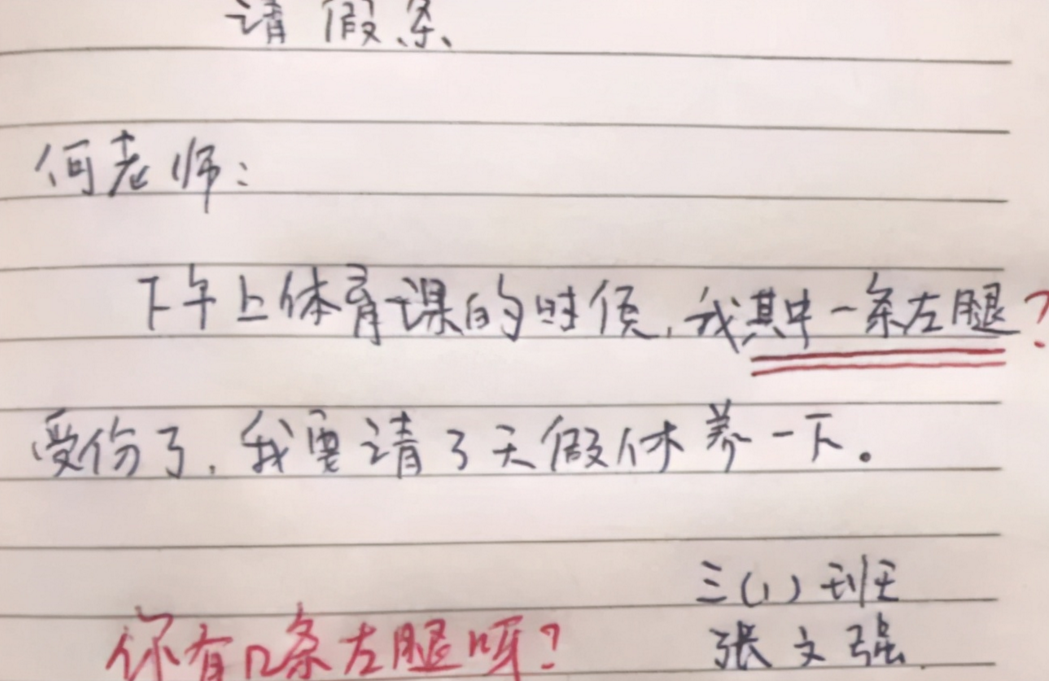 请假条
何老师:
下午上体育课的时候,我其中一条左腿?
受伤了,我要请3天假休养一下。
三(1)班
张文强
你有几条左腿呀?